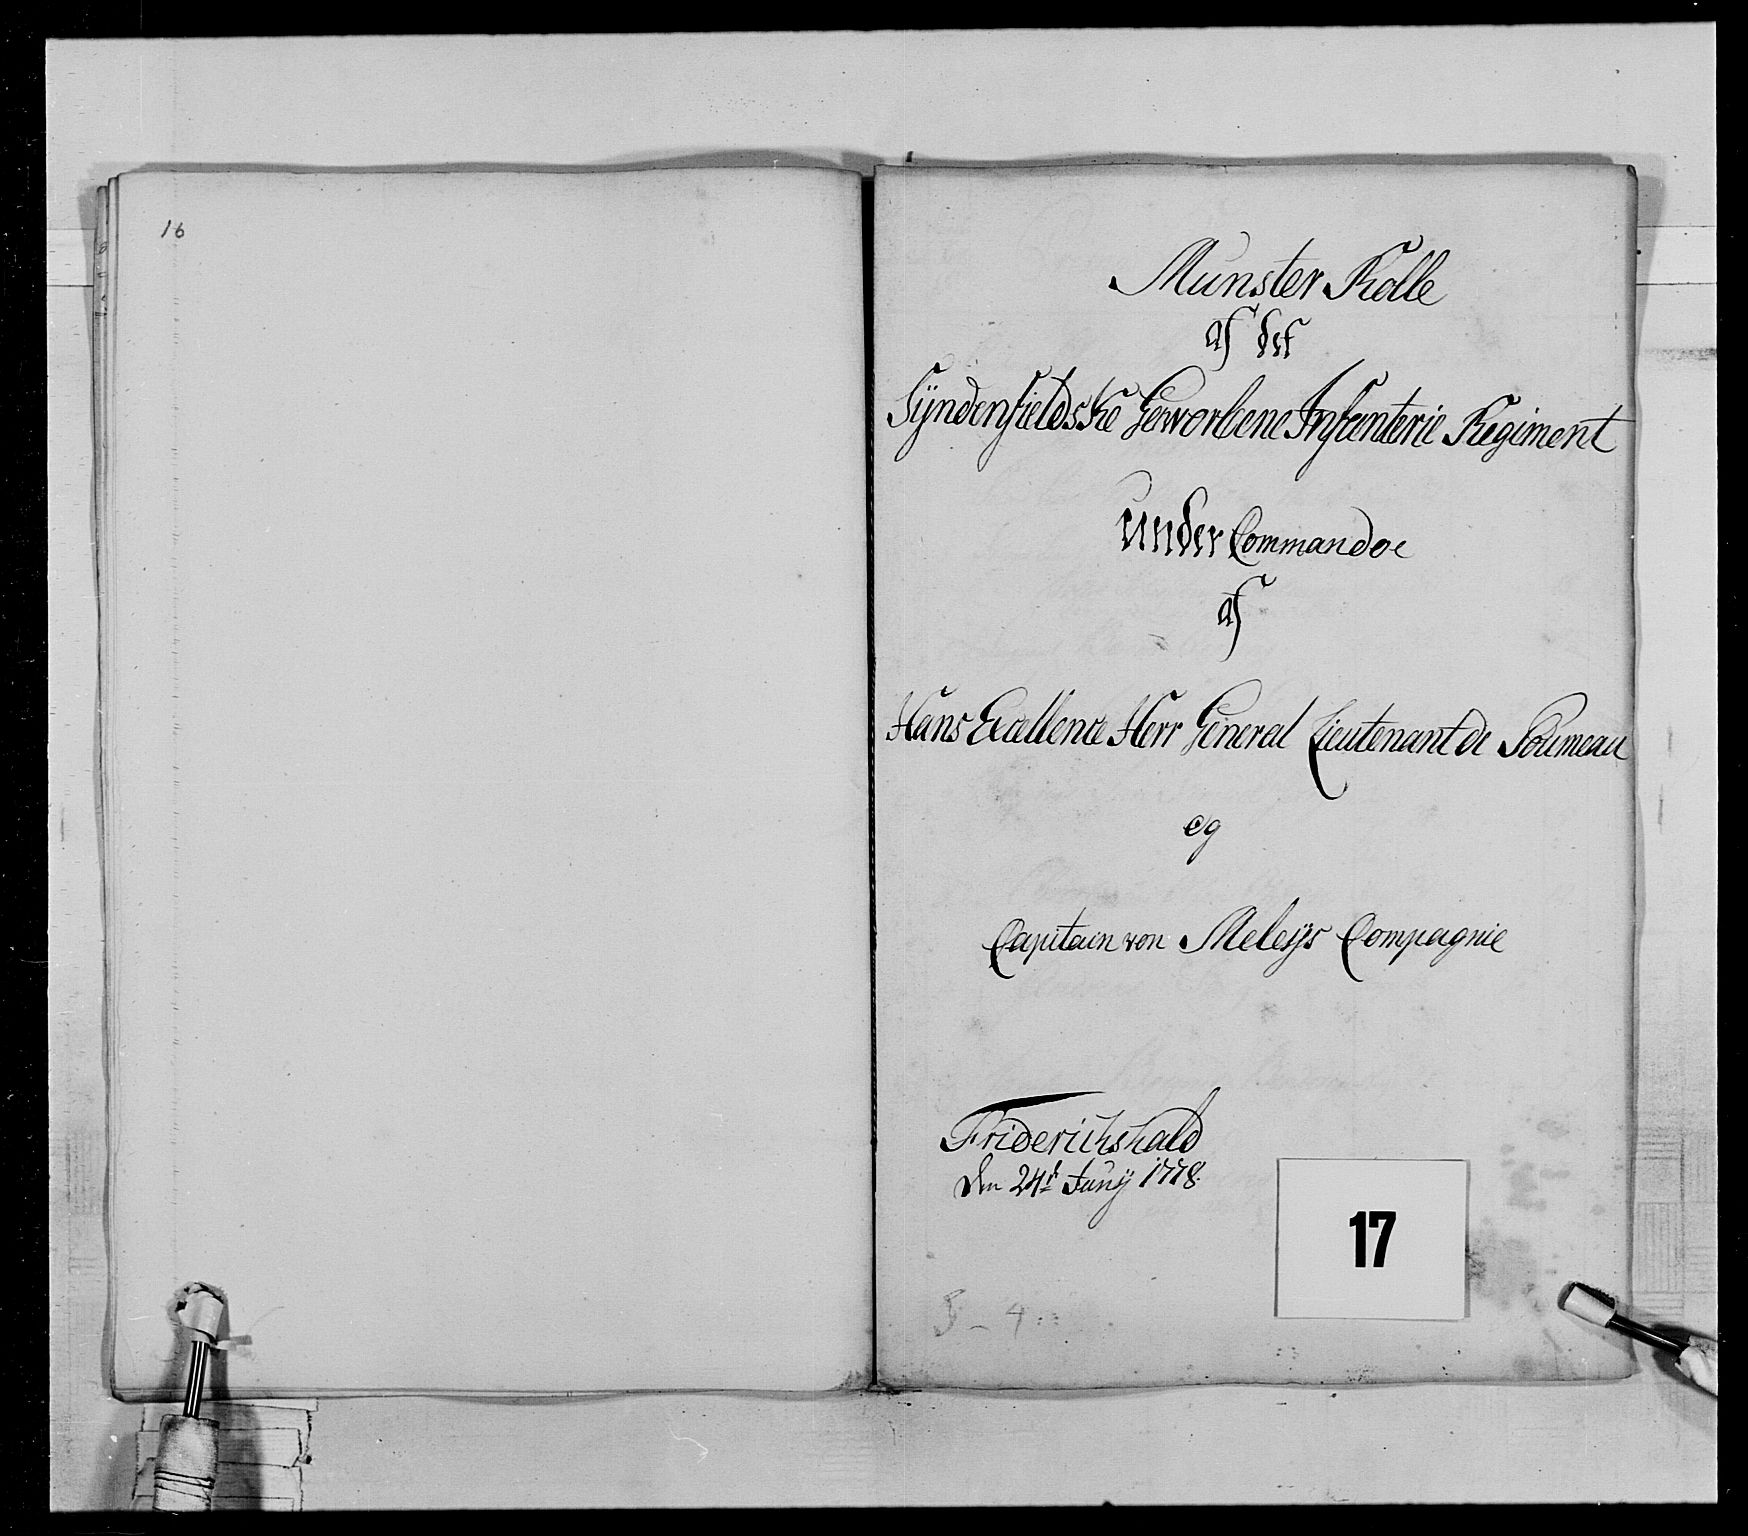 16
Munster Rolle
af det
Syndenfieldske Geworbene Infanterie Regiment
under Commandoe
af
Hans Excellence Herr General Lieutenant de Soumeau
og
Capitain von Meleÿs Compagnie
Friderichshald
den 24de Junÿ 1778.
17